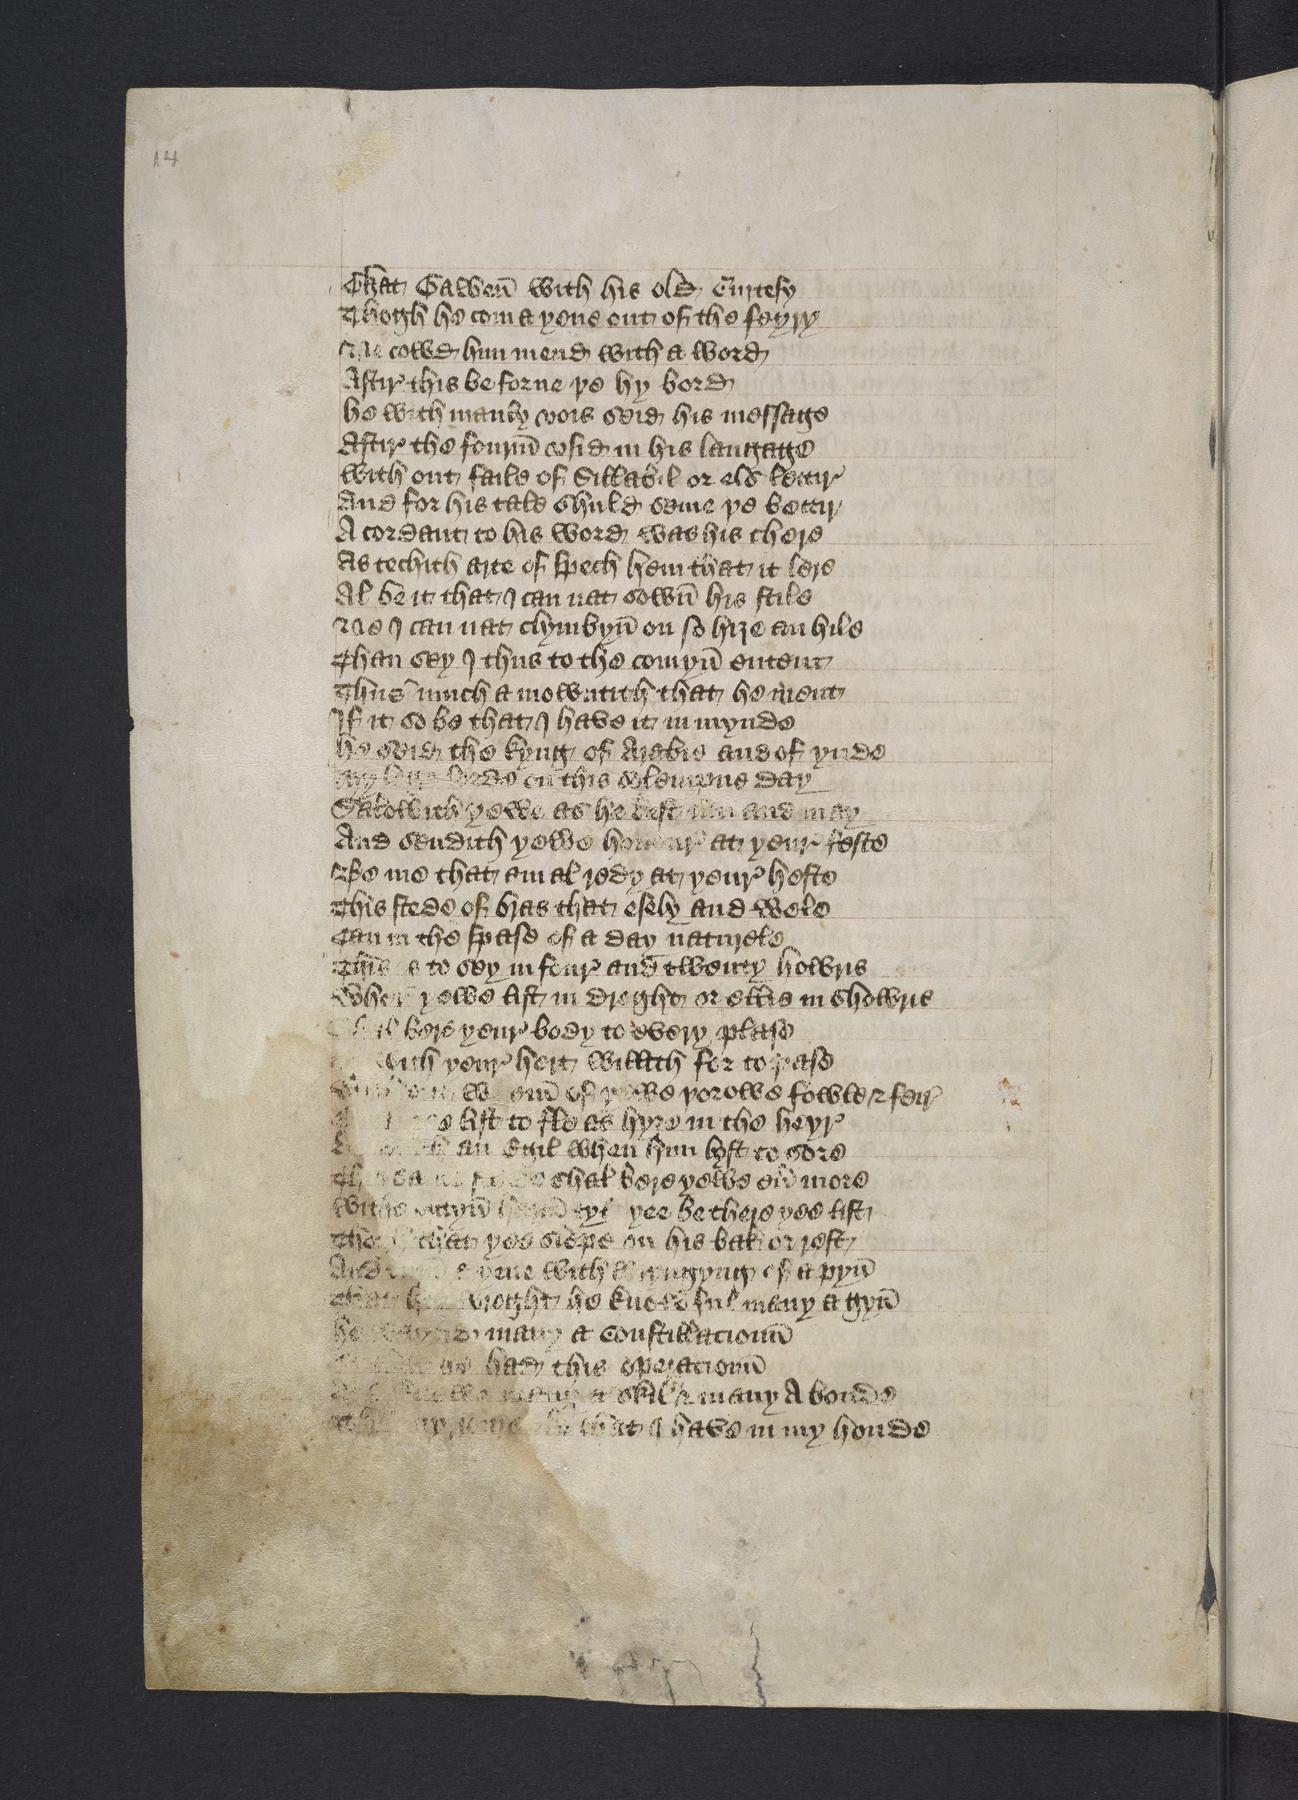 14
That Gaweñ with his old Curtesy
Thogh he com a yene out of the feyry
Ne cowd him mend with a word
Aftir this be forne þe hy bord
he with manly vois seid his message
Aftir the fourm̄ vsid in his langage
With out faile of Sillabil or els lettir
And for his tale shuld seme þe bettir
A cordant to his word was his chere
As techith arte of spech hem that it lere
Al be it that I can nat sown̄ his stile
Ne I can nat clymbyn̄ on so hize an hile
Than sey I thus to the comyn̄ entent
Thus much a mowntith that he ment
If it so be that I have it in mynde
he seid the kyng of Arabie and of ynde
My lige lorde on this solempne day
Salowith yowe as he best can and may
And sendith yowe honour at your feste
Be me that am al redy at your heste
This stede of bras that esely and wele
Can in the spase of a day naturele
This is to sey in four and twenty howris
Wher yowe list in droght or ellis in showris
bere your body to every plase
with your hert willith for to pase
of yowe þorowe fowle & feir
list to fle as hyze in the heyr
an Egil when him lyst to sore
shal bere yowe evir more
With outyn̄ harm̄ tyl yee be there yee list
Thogh that yee slepe on his bak or rest
And torne with wryngyng of a pyn̄
that wroght he knewe ful many a gyn̄
he waytid many a Constillacioun̄
had this operacioun̄
many a skil & many A bonde
that I have in my honde